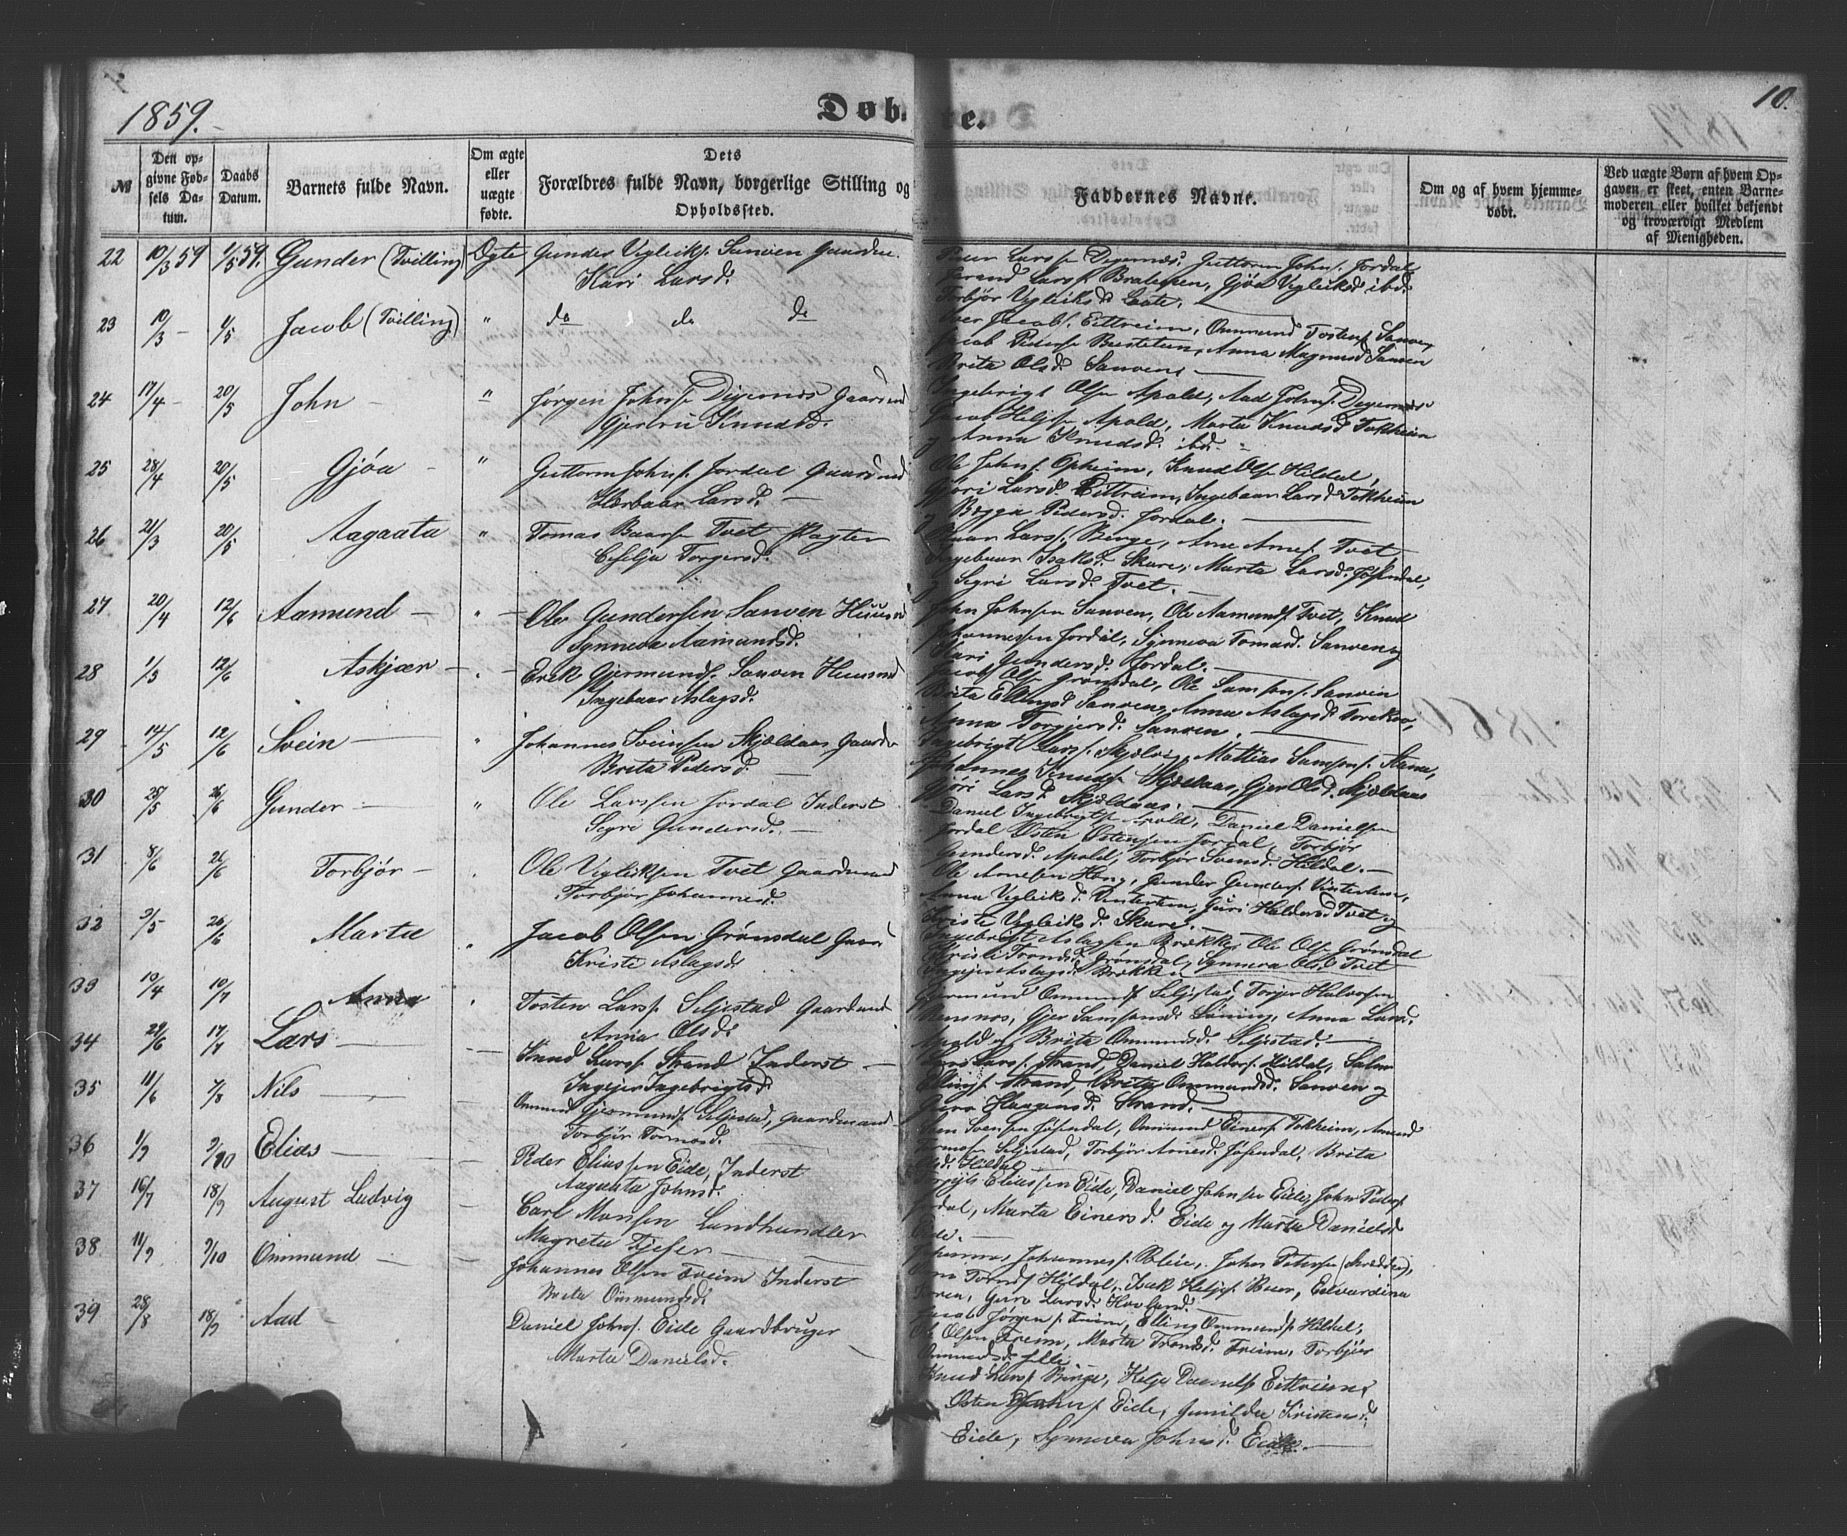 1859.
Døb. te.
10.
№
Den op-
givne Fød-
sels Da-
tum.
Daabs
Datum.
Barnets fulde Navn.
Om ægte
eller
uægte
fødte.
Dets
Forældres fulde Navn, borgerlige Stilling og
Opholdssted.
Faddernes Navne.
Om og af hvem hjemme-
døbt.
Ved uægte Børn af hvem Op-
gaven er skeet, enten Barne-
moderen eller hvilket bekjendt
og troværdigt Medlem
af Menigheden.
22 10/3 59 1/5 59. Gunder (Tvilling) Ægte Gunder Vigleiks. Sanven
Kari Larsd.
Peder Larss. Digernæs, Guttorm Johns. Jordal
Larss. Bratespen, Gjøa Vigleiksd. ibd.
Torbjør Vigleiksd.
23 10/3 - 1/5 Jacob (Tvilling) " do do do
Iver Jacobs. Eittreim, Ommund Tostens. Sanven
Jacob Peders. Anna Magnusd. Sanven
Brita Olsd. Sanven. -
24 17/4 - 20/5 John - " Jørgen Johns. Digernæs Gaardmd
Gjertru Knudsd.
Ingebrigt Olsen Apold, Aad Johns. Degernæs
Jacob Heljes. Apold, Marta Knudsd. Tokheim
og Anna Knudsd. ibd. -
25 28/4 20/5 Gjøa - " Guttorm Johns. Jordal Gaardmd
Herbaar Larsd. -
Ole Johns. Opheim, Knud Ols. Hildal,
Gjøri Larsd. Eittreim, Ingebaar Larsd. Tokheim
og Bægga Pedersd. Jordal. -
26 21/3 20/5 Aagaata " Tomas Baars. Tvet Pagter
Cesilja Torgersd.
Baar Larss. Berge, Arne Arnes. Tvet
Ingebaar Isaksd. Skare, Marta Larsd. Jøsendal,
og Segri Larsd. Tvet. -
27 20/4 12/6 Aamund - " Ole Gundersen Sanven Huusmd
Synneva Aamundsd.
John Johnsen Sanven, Ole Aamunds. Tvet, Knud
Johannessen Jordal, Synneva Tomasd. Sanven og
Kari Gundersd. Jordal. -
28 1/5 12/6 Askjær - " Erik Gjermunds. Sanven Huusmd
Ingebaar Aslagsd.
Jacob Ols. Grønsdal, Ole Samsons. Sanven
Brita Ellingsd. Sanven, Anna Aslagsd.
Anna Torgjersd. Sanven. -
29 14/5 12/6 Svein - " Johannes Sveinsen Skjældaas Gaardm
Brita Pedersd. -
Ingebrigt Larss. Skjælvig, Mattias Samsons.
Johannes Knuds. Skjældaas, Gjer Olsd. Skjældaas
Gjøri Larsd. Skjældaas. -
30 28/5 26/6 Gunder - " Ole Larssen Jordal Inderst
Segri Gundersd. -
Daniel Ingebrigts. Apold, Daniel Danielsen
Jordal Osten Ostensen Jordal, Torbjør
Gundersd. Apold, Torbjør Svensd. Hildal. -
31 8/6 26/6 Torbjør - " Ole Vigleiksen Tvet Gaardmand
Torbjør Johannesd.
Ole Arnesen Haug, Gunder Gunders. Vintertun,
Anna Vigleiksd. Vintertun, Guri Haldorsd. Tvet og
Christe Vigleiksd. Skare. -
32 3/5 26/6 Marta " Jacob Olsen Grønsdal Gaard
Kriste Aslagsd.
Ingebrigt Aslagsen Brække, Ole Ols. Grønsdal
Christe Trondsd. Grønsdal, Synneva Olsd. Tvet
Ingejer Aslagsd. Brække
33 10/4 10/7 Anna " Tosten Larss. Seljestad Gaardmd
Anna Olsd.
Gjermund Ommunds. Seljestad, Torjer Halvorsen
Mannos, Gjer Samsonsd. Sanven, Anna Larsd.
Apold og Brita Ommundsd. Seljestad. -
34 29/6 17/7 Lars - - Knud Larss. Strand Inderst -
Ingejer Ingebrigtsd.
Larss. Strand, Daniel Haldors. Hildal,
Ellings. Strand, Brita Ommundsd. Sanven og
Haagensd. Strand.
35 11/6 7/8 Nils - Ommund Gjermunds. Seljestad, Gaardmand
Torbjør Tormosd.
Svensen Jøsendal, Ommund Einers. Tokheim, Amund
Seljestad, Torbjør Arnesd. Jøsendal, Brita
Hildal
36 1/9 2/10 Elias - Peder Eliassen Eide, Inderst
Aagaata Johnsd.
Eliassen Eide, Daniel Johnsen Eide, John Peders.
Jordal, Marta Einersd. Eide og Marta Danielsd.
Eide. -
37 16/7 18/9 August Ludvig - Carl Monsen Landhandler
Magreta
Johannes. Bleie, John Petersen (Skrædder),
Hildal, Isak Heljes. Buer, Edvardina
Guro Larsd. Hovland. -
38 11/9 2/10 Ommund - Johannes Olsen Freim Inderst
Brita Ommundsd.
Jacob Jørgens. Freim, Elling Ommunds. Hildal,
Ole Olsen Freim, Marta Trondsd. Freim, Torbjør
Ommundsd. Jelle -
39 28/8 18/9 Aad - Daniel Johns. Eide Gaardbruger
Marta Danielsd.
Knud Larss. Berge, Helje Daniels. Eittreim,
Osten Johns. Eide, Gunilda Kristensd.
Eide, Synneva Johnsd. Eide. -